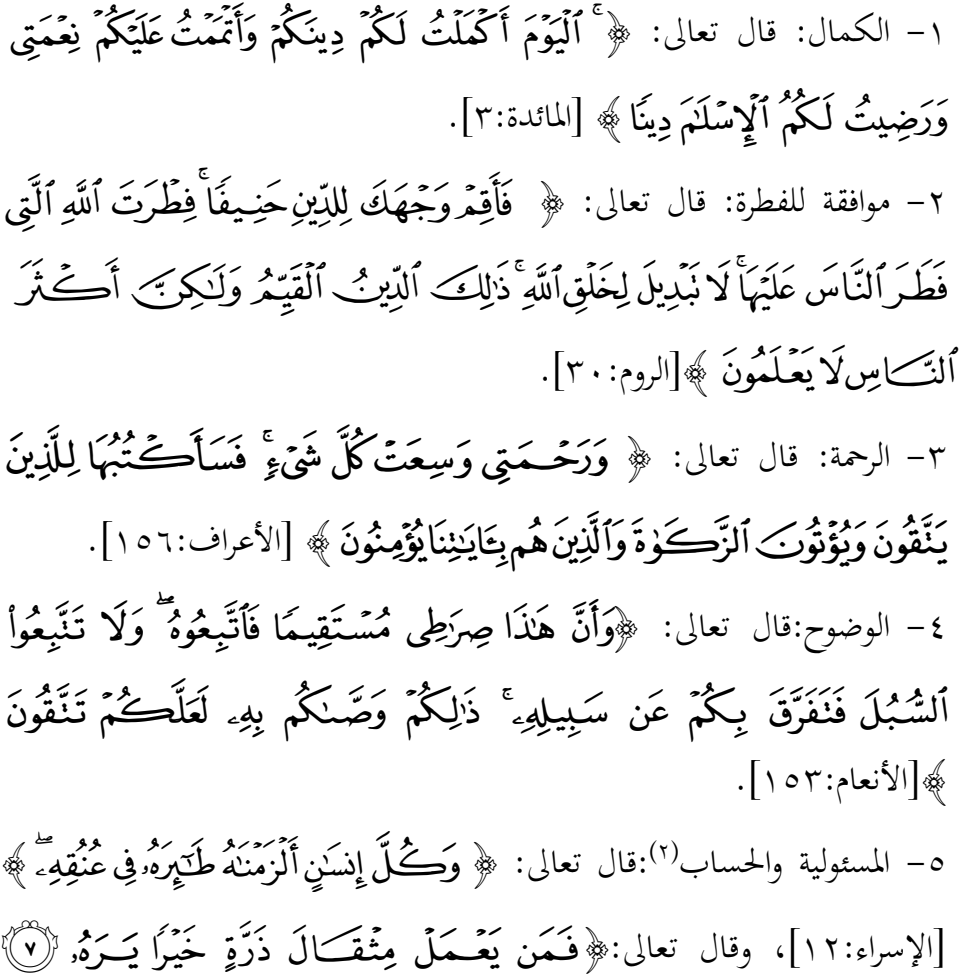 ١- الكمال: قال تعالى: ﴿ ۚ ٱلۡيَوۡمَ أَكۡمَلۡتُ لَكُمۡ دِينَكُمۡ وَأَتۡمَمۡتُ عَلَيۡكُمۡ نِعۡمَتِي
وَرَضِيتُ لَكُمُ ٱلۡإِسۡلَٰمَ دِينٗا ﴾ [المائدة:٣].
٢- موافقة للفطرة: قال تعالى: ﴿ فَأَقِمۡ وَجۡهَكَ لِلدِّينِ حَنِيفٗاۚ فِطۡرَتَ ٱللَّهِ ٱلَّتِي
فَطَرَ ٱلنَّاسَ عَلَيۡهَاۚ لَا تَبۡدِيلَ لِخَلۡقِ ٱللَّهِۚ ذَٰلِكَ ٱلدِّينُ ٱلۡقَيِّمُ وَلَٰكِنَّ أَكۡثَرَ
ٱلنَّاسِ لَا يَعۡلَمُونَ ﴾[الروم:٣٠].
٣- الرحمة: قال تعالى: ﴿ وَرَحۡمَتِي وَسِعَتۡ كُلَّ شَيۡءٖۚ فَسَأَكۡتُبُهَا لِلَّذِينَ
يَتَّقُونَ وَيُؤۡتُونَ ٱلزَّكَوٰةَ وَٱلَّذِينَ هُم بِـَٔايَٰتِنَا يُؤۡمِنُونَ ﴾ [الأعراف:١٥٦].
٤- الوضوح:قال تعالى: ﴿وَأَنَّ هَٰذَا صِرَٰطِي مُسۡتَقِيمٗا فَٱتَّبِعُوهُۖ وَلَا تَتَّبِعُواْ
ٱلسُّبُلَ فَتَفَرَّقَ بِكُمۡ عَن سَبِيلِهِۦۚ ذَٰلِكُمۡ وَصَّىٰكُم بِهِۦ لَعَلَّكُمۡ تَتَّقُونَ
﴾[الأنعام:١٥٣].
٥- المسئولية والحساب(٢):قال تعالى: ﴿ وَكُلَّ إِنسَٰنٍ أَلۡزَمۡنَٰهُ طَٰٓئِرَهُۥ فِي عُنُقِهِۦۖ ﴾
[الإسراء:١٢]، وقال تعالى:﴿ فَمَن يَعۡمَلۡ مِثۡقَالَ ذَرَّةٍ خَيۡرٗا يَرَهُۥ ٧